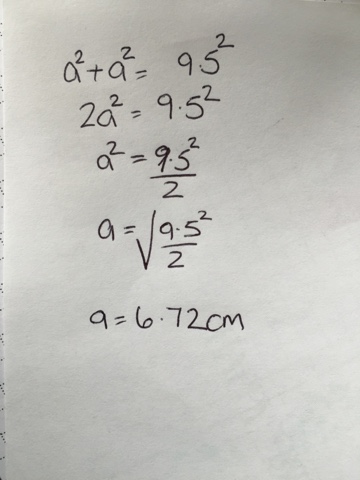 a²+a² = 9·5²
2a² = 9·5²
a² = 9·5²
2
a = √9·5²
2
a = 6·72cm